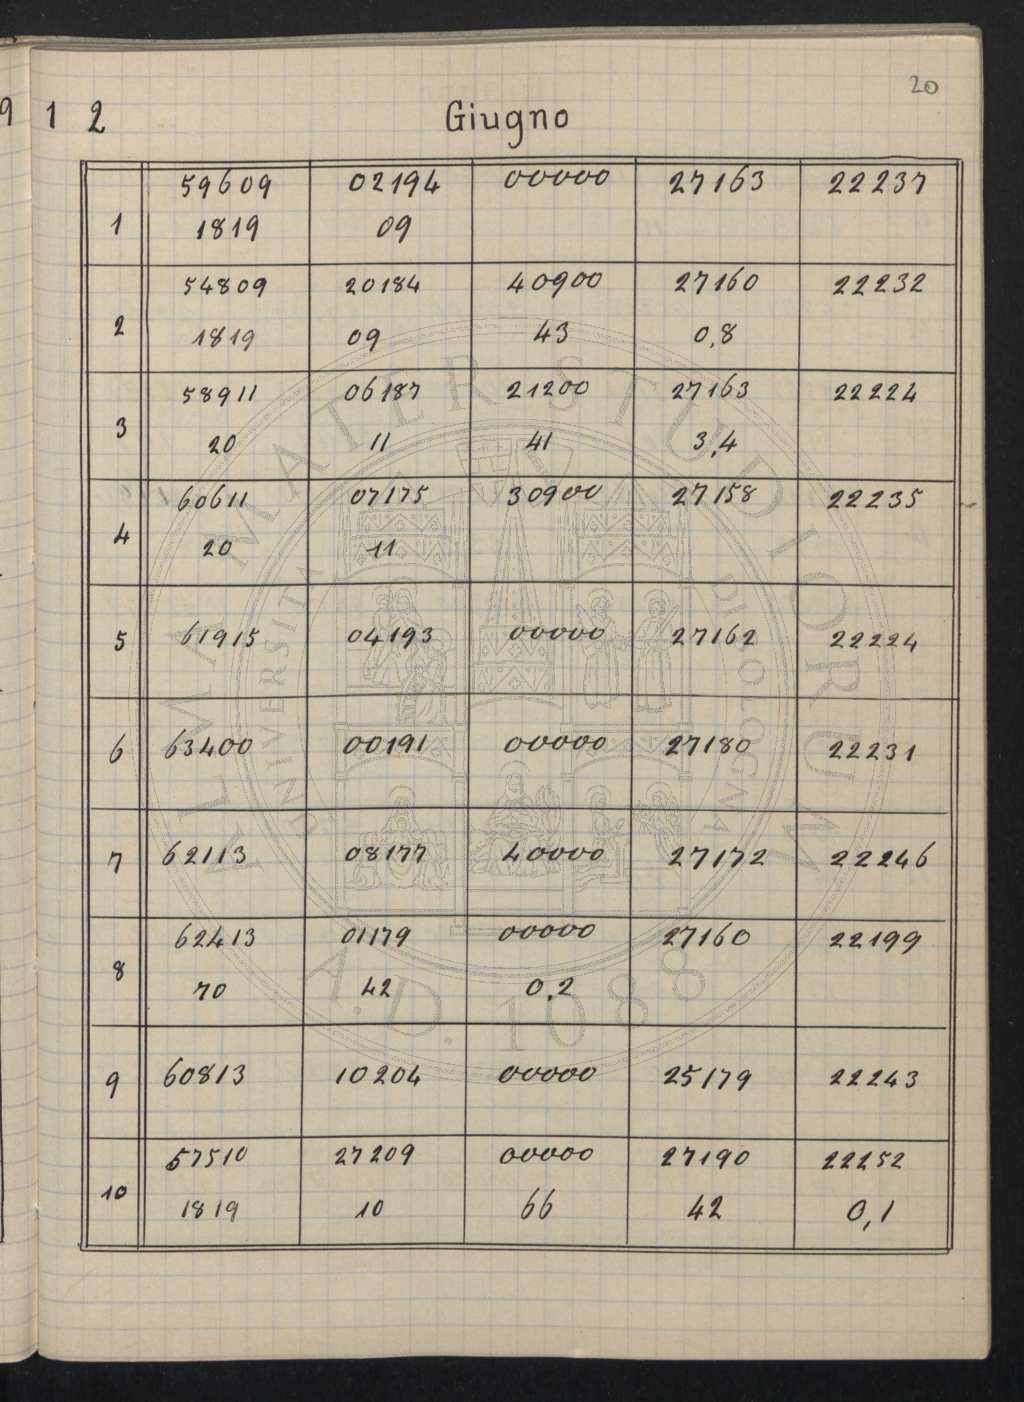 20
9 1 2 Giugno
59609 02194 00000 27163 22237
1
1819 09
54809 20184 40900 27160 22232
2
1819 09 43 0,8
58911 06187 21200 27163 22224
3
20 11 41 3,4
60611 07175 30900 27158 22235
4
20 11
5 61915 04193 00000 27162 22224
6 63400 00191 00000 27180 22231
7 62113 08177 40000 27172 22246
62413 01179 00000 27160 22199
8
70 42 0,2
9 60813 10204 00000 25179 22243
57510 27209 00000 27190 22252
10
1819 10 66 42 0,1
ALMA MATER STUDIORUM
UNIVERSITÀ DI BOLOGNA
A.D. 1088